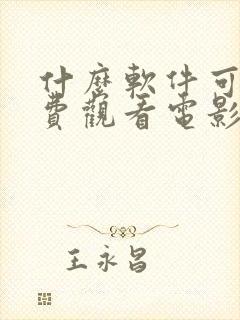 什麼軟件可
費觀看電影
王永昌